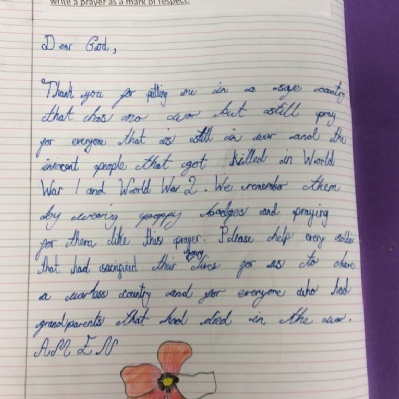 Write a prayer as a mark of respect.
Dear God,
Thank you for putting me in a safe country
that has no war but still pray
for everyone that is still in war and the
innocent people that got killed in World
War 1 and World War 2. We remember them
by wearing poppy badges and praying
for them like this prayer. Please help every soldier
that had sacrificed their lives for us to have
a warless country and for everyone who had
grandparents that had died in the war.
AMEN